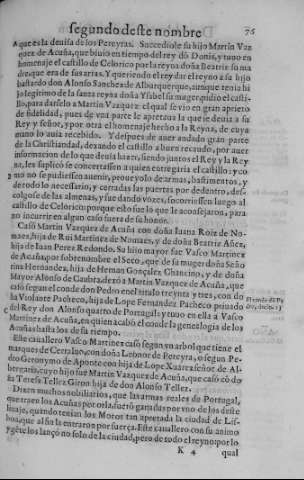 segundo deste nombre 76
A que es la deuisa de los Pereyras. Succediole su hijo Martin Vaz
quez de Acuña, que biuio en tiempo del rey dõ Donis, y tuuo en
homenaje el castillo de Celorico por la reyna doña Beatriz su ma
dre, que era de sus arias. Y queriendo el rey dar el reyno a su hijo
bastardo don Alonso Sanchez de Alburquerque, aunque tenia hi
jo legitimo de la santa reyna doña Ysabel su muger, pidio el casti-
llo, para darselo a Martin Vazquez: el qual se vio en gran aprieto
de fidelidad, pues de vna parte le apretaua la que deuia a su
Rey y señor, y por otra el homenaje hecho a la Reyna, de cuya
mano lo auia recebido. Y despues de auer andado gran parte
de la Christiandad, dexando el castillo a buen recaudo, por auer
informacion de lo que deuia hazer, siendo juntos el Rey y la Rey
na, les suplicò se concertassen a quien entregaria el castillo: y co
mo no se pudiessen auenir, proueyolo de armas, bastimentos, y
de todo lo necessario, y cerradas las puertas por dedentro, des-
colgose de las almenas, y fue dando vozes, socorriessen luego al
castillo de Celorico: porque esto fue lo que le aconsejaron, para
no incurrir en algun caso fuera de su honor.
Casò Martin Vazquez de Acuña con doña Iuana Roiz de No-
maes, hija de Rui Martinez de Nomaes, y de doña Beatriz Añez,
hija de Iuan Perez Redondo. Su hijo mayor fue Vasco Martinez
de Acuña, por sobrenombre el Seco, que de su muger doña Seño
rina Hernandez, hija de Hernan Gonçalez Chancino, y de doña
Mayor Alonso de Cambra, tuuo a Martin Vazquez de Acuña, que
casò segun el conde don Pedro en el titulo treynta y tres, con do
ña Violante Pacheco, hija de Lope Fernandez Pacheco priuado
del Rey don Alonso quarto de Portugal: y tuuo en ella a Vasco
Martinez de Acuña, en quien acabò el conde la genealogia de los
Acuñas hasta los de su tiempo.
Este cauallero Vasco Martinez casò segun vn arbol que tiene el
marques de Cerraluo, con doña Leonor de Pereyra, o segun Pe-
dro Geronymo de Aponte con hija de Lope Xuarez señor de Al-
bergaria, cuyo hijo fue Martin Vazquez de Acuña, que casò cõ do
ña Teresa Tellez Giron hija de don Alonso Tellez.
Dizen muchos nobiliarios, que las armas reales de Portugal,
que traen los Acuñas por orla, fuerõ ganadas por vno de los deste
linaje, quando tenian los Moros tan apretada la ciudad de Lis-
boa, que al fin la entraron por fuerça. Este cauallero con su animo
y gẽte los lançò no solo de la ciudad, pero de todo el reyno: por lo
K 4 qual